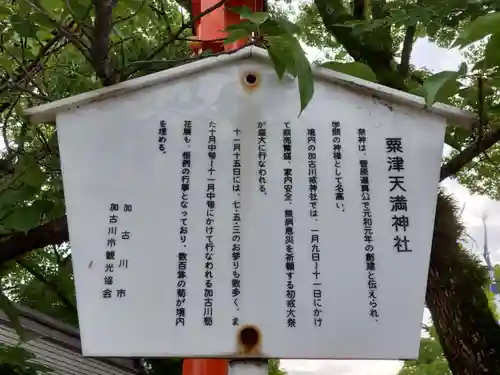 粟津天満神社
祭神は、菅原道真公で元和元年の創建と伝えられ、
学問の神様として名高い。
境内の加古川戎神社では、一月九日〜十一日にかけ
て商売繁盛、家内安全、無病息災を祈願する初戎大祭
が盛大に行なわれる。
十一月十五日には、七・五・三のお参りも数多く、ま
た十月中旬〜十一月中旬にかけて行なわれる加古川菊
花展も、恒例の行事となっており、数百等の菊が境内
を埋める。
加古川市
加古川市観光協会